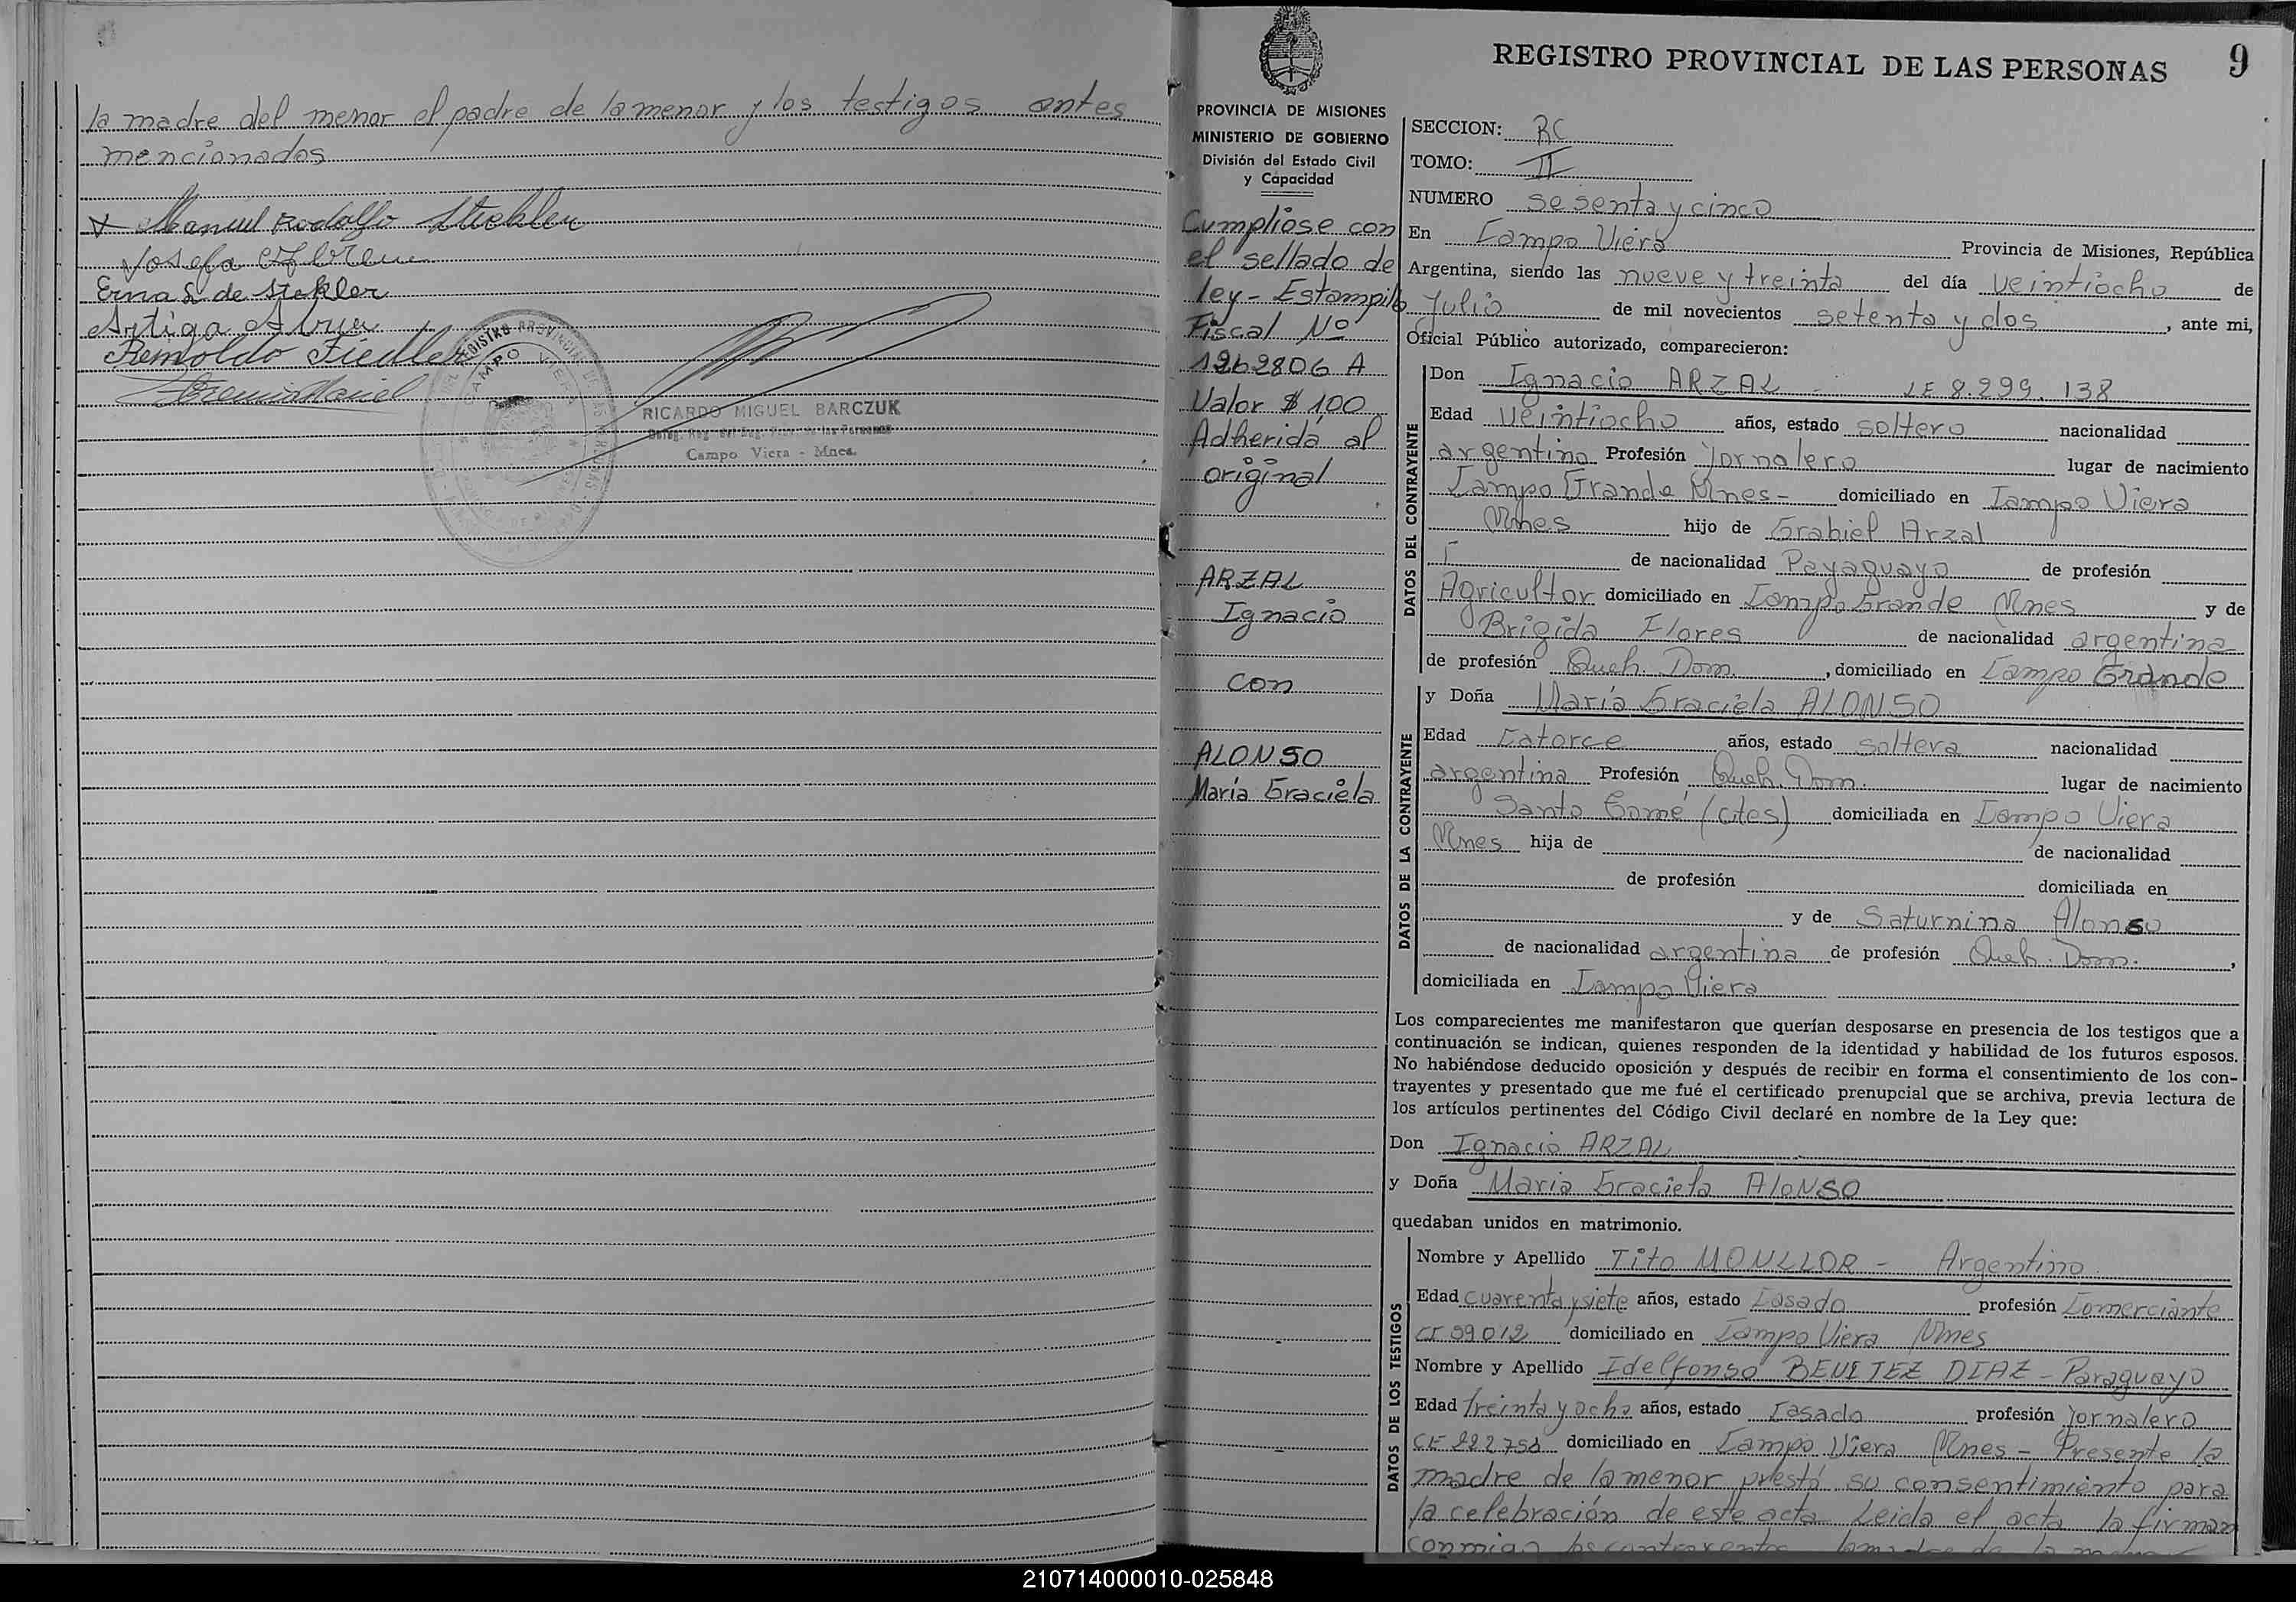 la madre del menor el padre de la menor y los testigos antes
mencionados
x Manuel Rodolfo Stekler
Josefa
Erna S. de Stekler
Artiga Abreu
Remoldo Fiedler
REGISTRO PROVINCIAL DE LAS PERSONAS
CAMPO VIERA
RICARDO MIGUEL BARCZUK
Deleg. Reg. del Reg. Prov. de las Personas
Campo Viera - Mnes.
REGISTRO PROVINCIAL DE LAS PERSONAS
9
PROVINCIA DE MISIONES
MINISTERIO DE GOBIERNO
División del Estado Civil
y Capacidad
Cumpliose con
el sellado de
ley - Estampilla
Fiscal Nº
1262806 A
Valor $ 100
Adherida al
original
ARZAL
Ignacio
con
ALONSO
María Graciela
SECCION: RC
TOMO: II
NUMERO sesenta y cinco
En Campo Viera Provincia de Misiones, República
Argentina, siendo las nueve y treinta del día veintiocho de
Julio de mil novecientos setenta y dos, ante mi,
Oficial Público autorizado, comparecieron:
DATOS DEL CONTRAYENTE
Don Ignacio ARZAL - LE 8.299.138
Edad veintiocho años, estado soltero nacionalidad
argentino Profesión Jornalero lugar de nacimiento
Campo Grande Mnes- domiciliado en Campo Viera
Mnes hijo de Grabiel Arzal
de nacionalidad Payaguayo de profesión
Agricultor domiciliado en Campo Grande Mnes y de
Brigida Flores de nacionalidad argentina
de profesión Queh. Dom., domiciliado en Campo Grande
DATOS DE LA CONTRAYENTE
y Doña María Graciela ALONSO
Edad Catorce años, estado soltera nacionalidad
argentina Profesión Queh. Dom. lugar de nacimiento
Santo Tomé (Ctes) domiciliada en Campo Viera
Mnes hija de de nacionalidad
de profesión domiciliada en
y de Saturnina Alonso
de nacionalidad argentina de profesión Queh. Dom.,
domiciliada en Campo Viera
Los comparecientes me manifestaron que querían desposarse en presencia de los testigos que a
continuación se indican, quienes responden de la identidad y habilidad de los futuros esposos.
No habiéndose deducido oposición y después de recibir en forma el consentimiento de los con-
trayentes y presentado que me fué el certificado prenupcial que se archiva, previa lectura de
los artículos pertinentes del Código Civil declaré en nombre de la Ley que:
Don Ignacio ARZAL
y Doña Maria Graciela AloNSO
quedaban unidos en matrimonio.
DATOS DE LOS TESTIGOS
Nombre y Apellido Tito MOULLOR - Argentino
Edad cuarenta y siete años, estado Casado profesión Comerciante
CI 99012 domiciliado en Campo Viera Mnes
Nombre y Apellido Idelfonso BENITEZ DIAZ - Paraguayo
Edad treinta y ocho años, estado Casado profesión Jornalero
domiciliado en Campo Viera Mnes - Presente la
madre de la menor prestó su consentimiento para
la celebración de este acta Leida el acta la firman
conmigo los contrayentes la madre de la menor
210714000010-025848